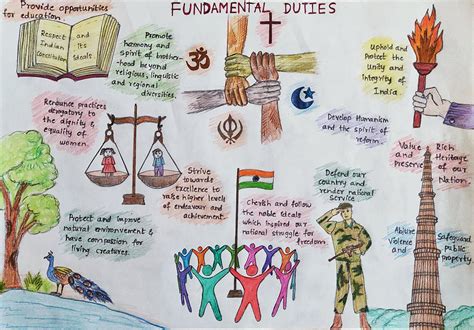 FUNDAMENTAL DUTIES
Provide opportunities
for education.
Respect
Indian
Constitution
and
Its
Ideals
Promote
harmony and
spirit of brother-
hood beyond
religious, linguistic
and regional
diversities.
Uphold and
Protect the
Unity and
integrity of
India
Renounce practices
derogatory to
the dignity &
equality of
women
Develop Humanism
and the spirit of
reform.
Value
and
preserve
Rich
Heritage of
our
Nation.
Strive
towards
Excellence to
raise higher levels
of endeavour and
achievement.
Defend our
country and
render national
service
Cherish and follow
the noble Ideals
which inspired our
national struggle for
freedom.
Protect and improve
natural environment &
have compassion for
living creatures.
Abjure
Violence
and
Safeguard
public
property.